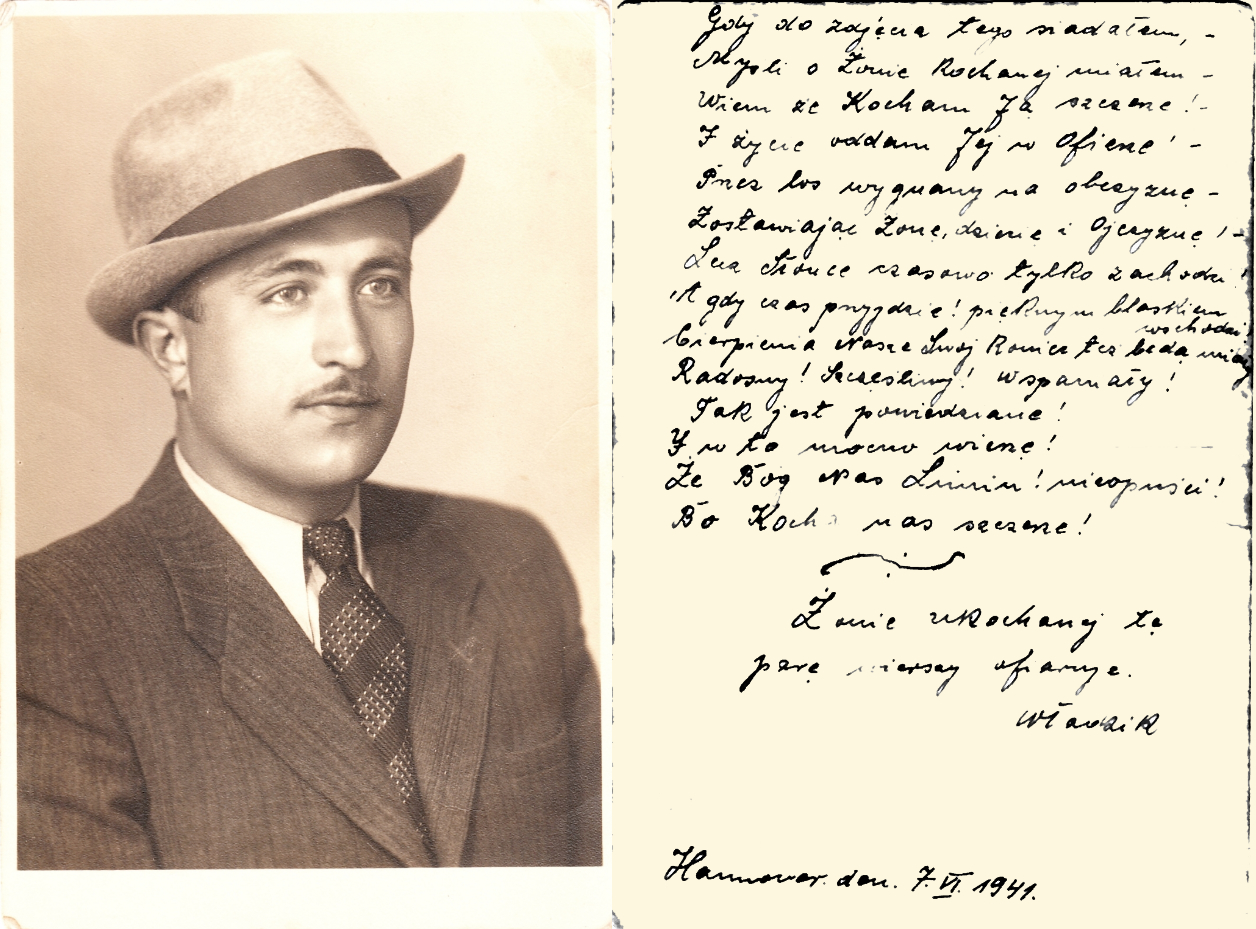 Gdy do zdjęcia tego siadałem, -
Myśli o Żonie Kochanej miałem -
Wiem że Kocham Ją szczerze! -
I życie oddam Jej w Ofierze! -
Przez los wygnany na obczyznę -
Zostawiając Żonę, dziecię i Ojczyznę! -
Lecz Słońce czasowo tylko zachodzi!
A gdy czas przyjdzie! pięknym blaskiem
wschodzi!
Cierpienia Nasze Swój Koniec też będą miały
Radosny! Szczęśliwy! Wspaniały!
Tak jest powiedziane!
I w to mocno wierzę!
Że Bóg Nas nieopuści!
Bo Kocha nas szczerze!
Żonie ukochanej tę
parę wierszy ofiaruję.
Włodzik
Hannover. den. 7.VI.1941.